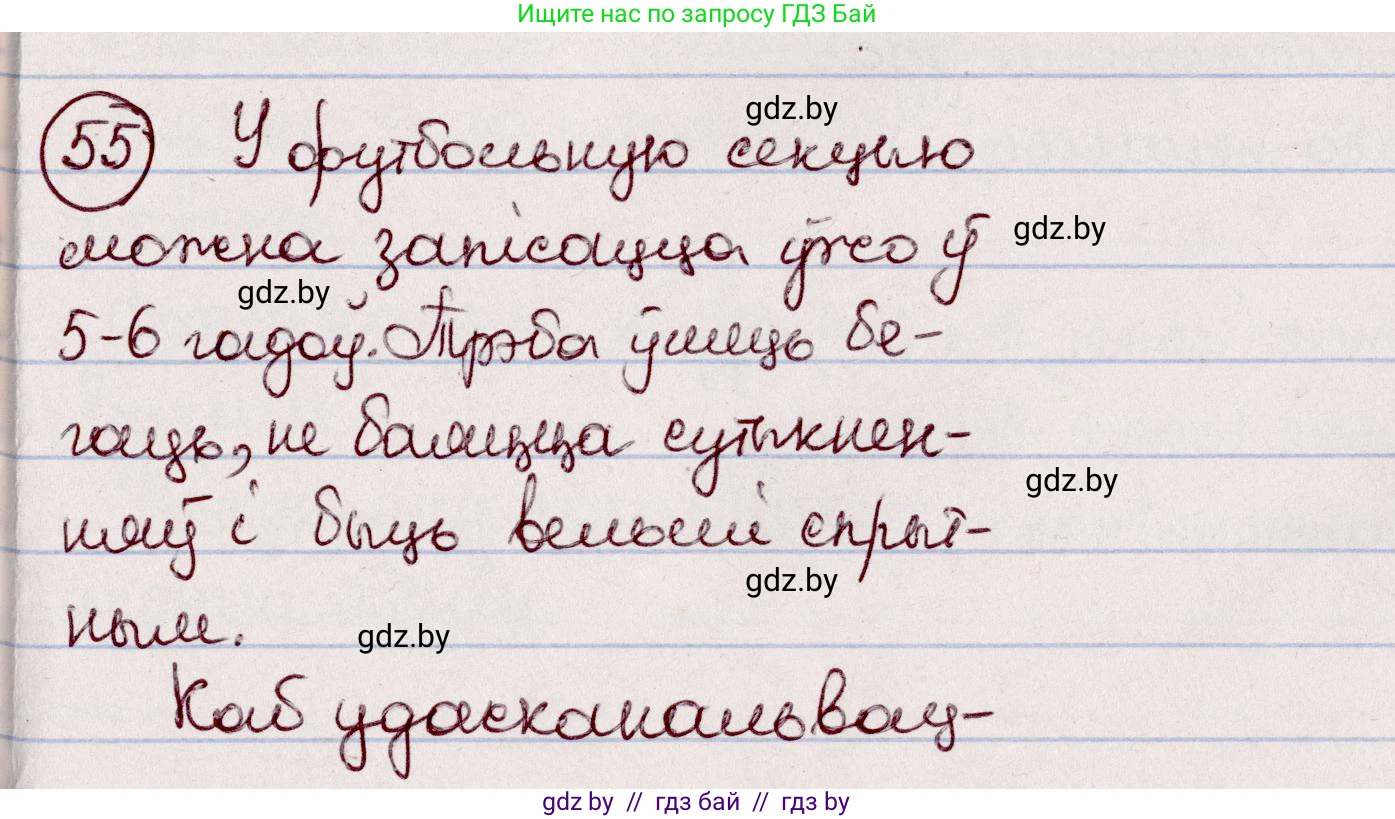 Ищите нас по запросу ГДЗ Бай
gdz.by
55 У футбольную секцыю
можна запісацца ўжо ў gdz.by
gdz.by
5-6 гадоў. Трэба ўмець бе-
гаць, не баяцца сутыкнен-
gdz.by
няў і быць вельмі спрыт-
gdz.by
ным. gdz.by
Каб удасканальвац-
gdz by // гдз бай // гдз by